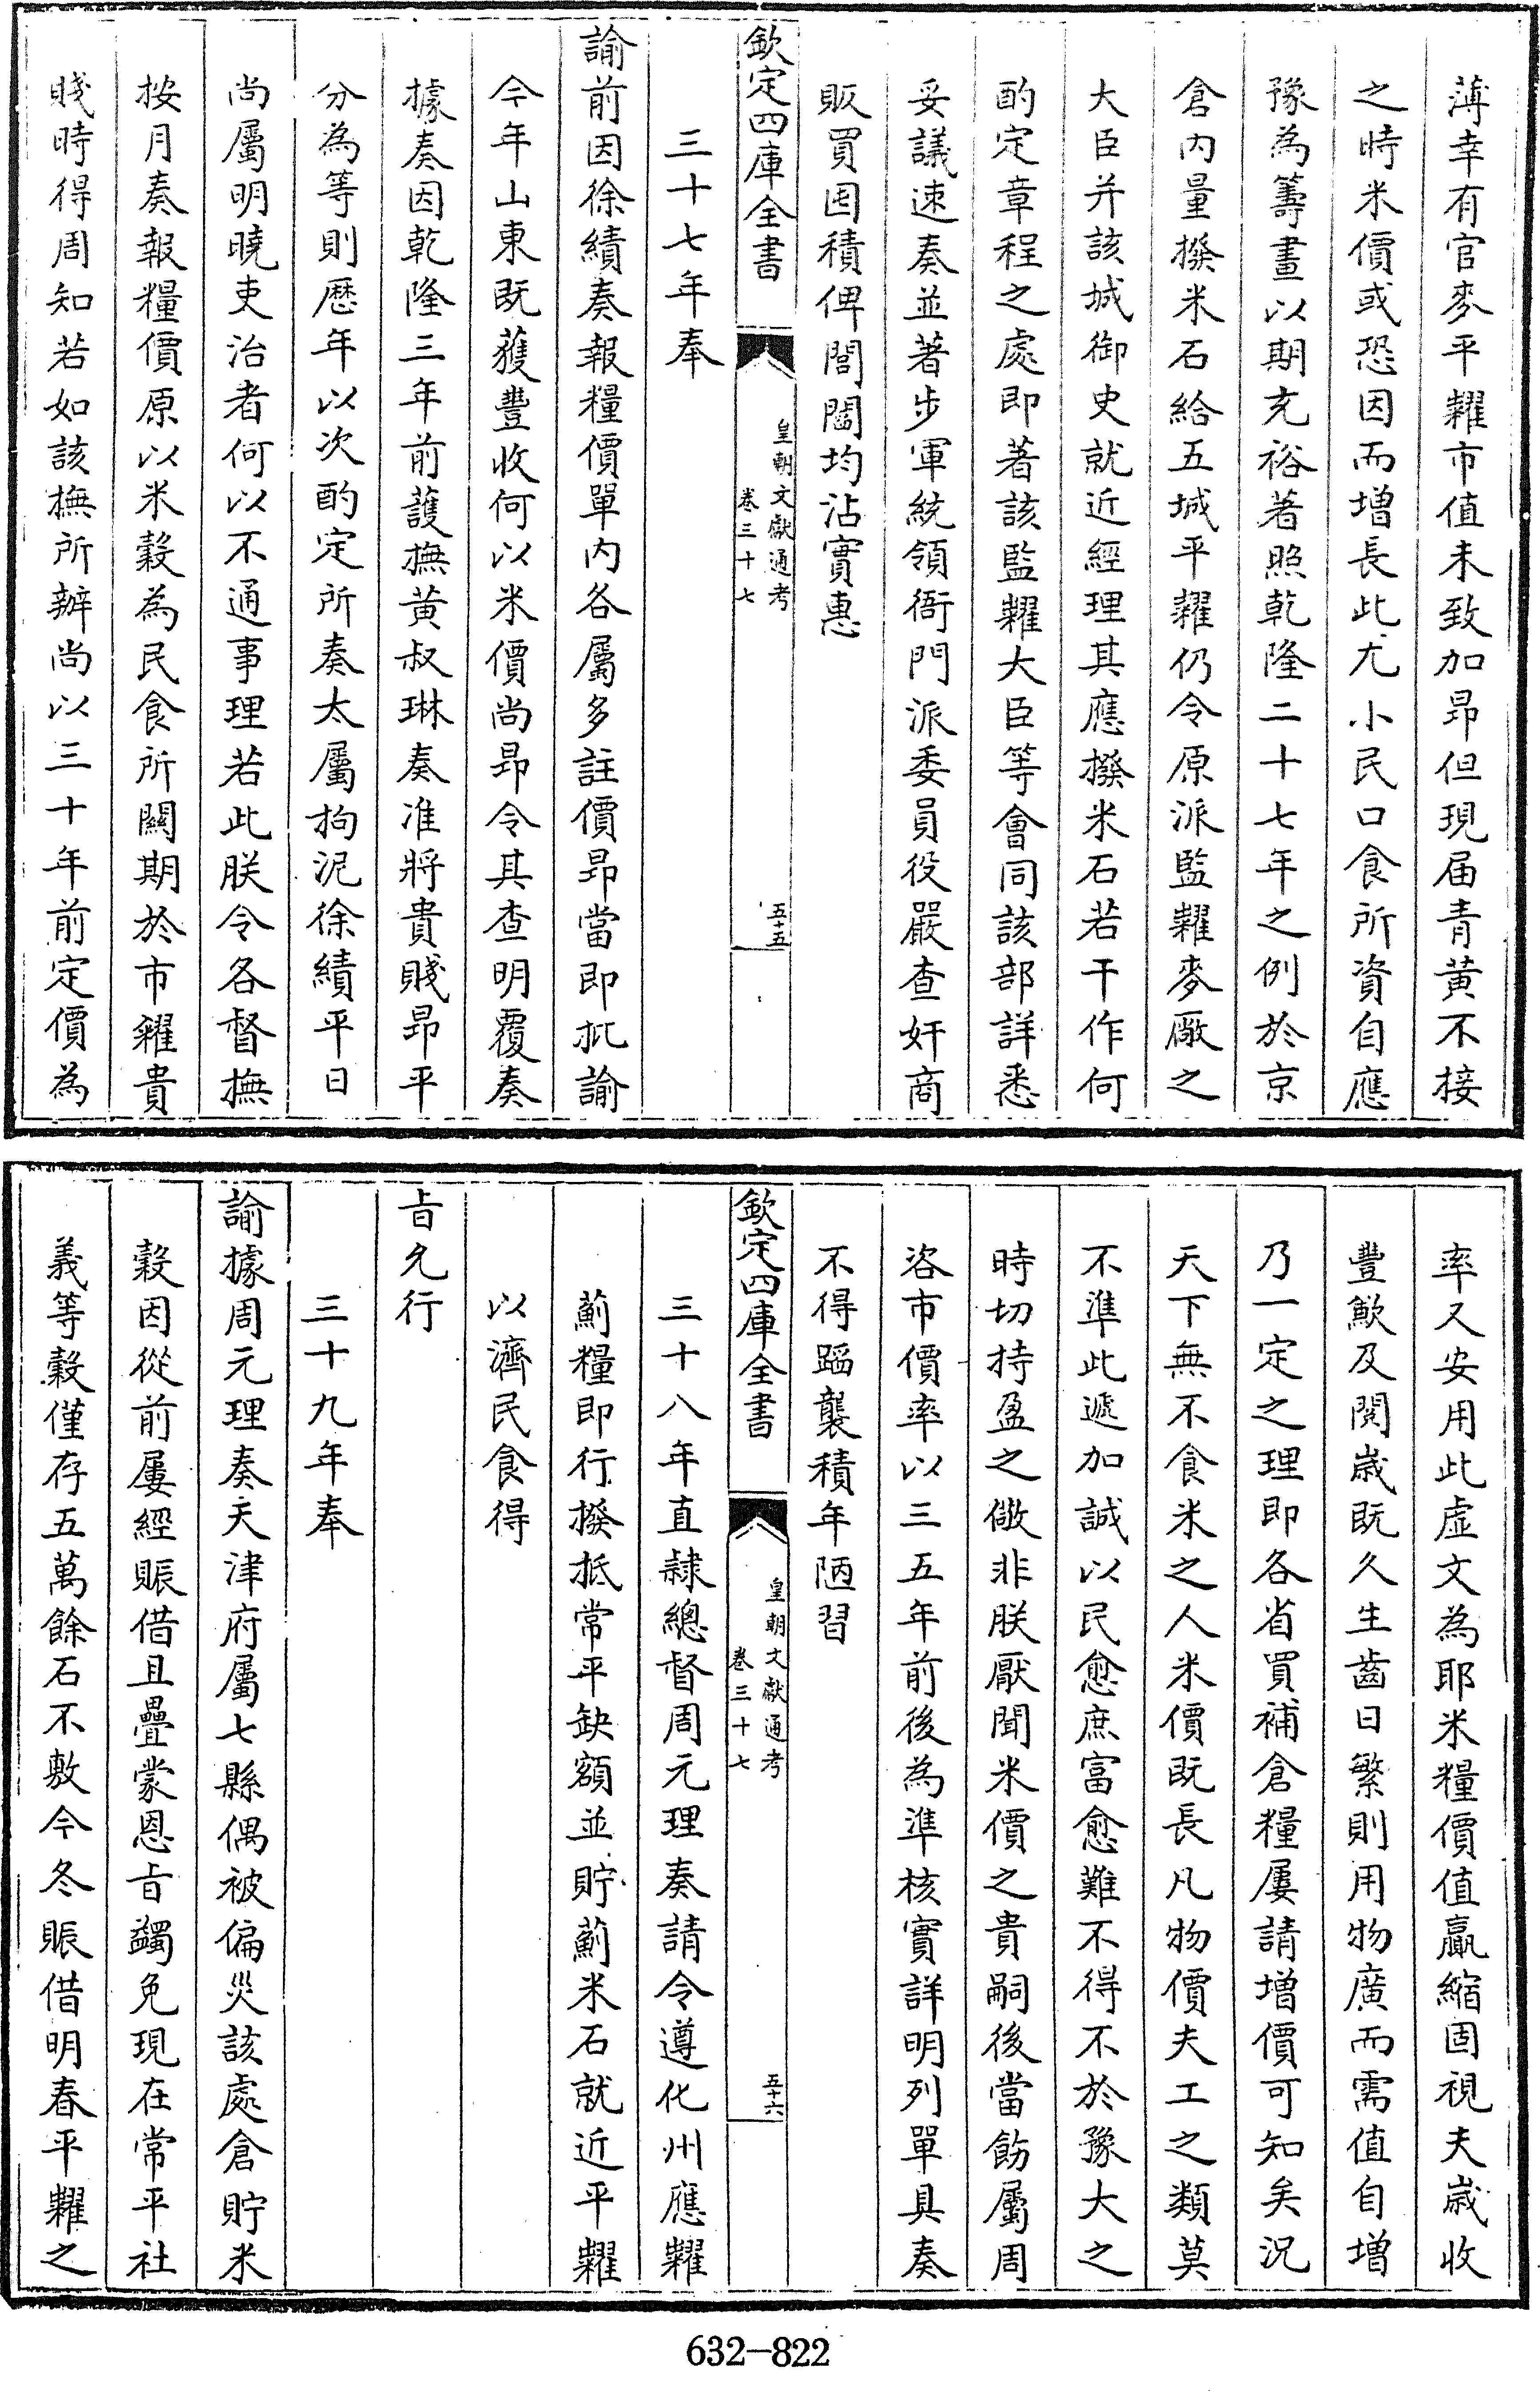 薄幸有官麥平糶市值未致加昂但現届青黃不接
之時米價或恐因而增長此尤小民口食所資自應
豫為籌畫以期充裕著照乾隆二十七年之例於京
倉內量撥米石給五城平糶仍令原派監糶麥厰之
大臣并該城御史就近經理其應撥米石若干作何
酌定章程之處即著該監糶大臣等會同該部詳悉
妥議速奏並著步軍統領衙門派委員役嚴查奸商
販買囤積俾閭閻均沾實惠
欽定四庫全書
皇朝文獻通考
卷三十七
五十五
三十七年奉
諭前因徐績奏報糧價單內各屬多註價昂當即批諭
今年山東既獲豐收何以米價尚昂令其查明覆奏
據奏因乾隆三年前護撫黃叔琳奏准將貴賤昂平
分為等則歴年以次酌定所奏太屬拘泥徐績平日
尚屬明曉吏治者何以不通事理若此朕令各督撫
按月奏報糧價原以米穀為民食所闗期於市糴貴
賤時得周知若如該撫所辦尚以三十年前定價為
率又安用此虛文為耶米糧價值贏縮固視夫歲收
豐歉及閱歲既久生齒日繁則用物廣而需值自增
乃一定之理即各省買補倉糧屢請增價可知矣況
天下無不食米之人米價既長凡物價夫工之類莫
不準此遞加誠以民愈庶富愈難不得不於豫大之
時切持盈之儆非朕厭聞米價之貴嗣後當飭屬周
咨市價率以三五年前後為準核實詳明列單具奏
不得蹈襲積年陋習
欽定四庫全書
皇朝文獻通考
卷三十七
五十六
三十八年直隸總督周元理奏請令遵化州應糶
薊糧即行撥抵常平缺額並貯薊米石就近平糶
以濟民食得
㫖允行
三十九年奉
諭據周元理奏天津府屬七縣偶被偏災該處倉貯米
穀因從前屢經賑借且疊蒙恩㫖蠲免現在常平社
義等穀僅存五萬餘石不敷今冬賑借明春平糶之
632-822